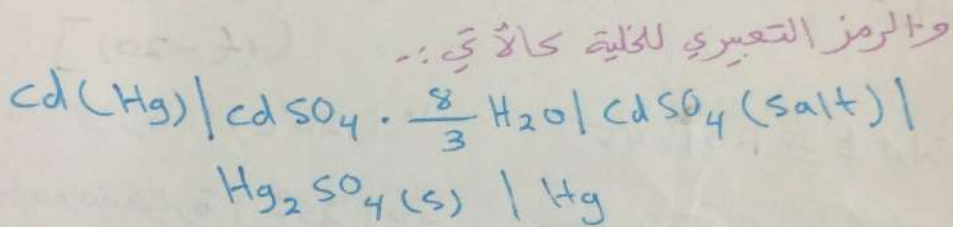 والرمز التعبيري للخلية كالآتي :-
cd(Hg) | cd SO₄ . 8/3 H₂O | CdSO₄ (Salt) |
Hg₂ SO₄ (s) | Hg